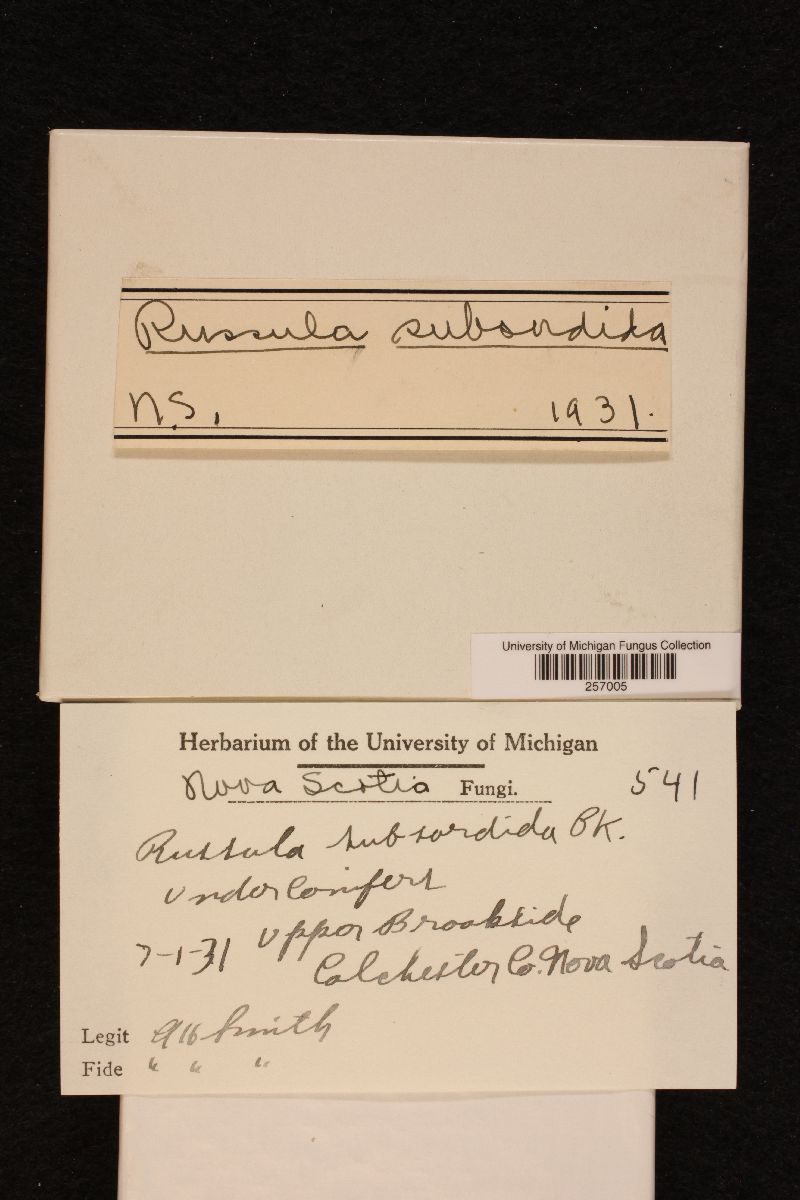 Russula subsordida
N.S. 1931.
University of Michigan Fungus Collection
257005
Herbarium of the University of Michigan
Nova Scotia Fungi. 541
Russula subsordida Pk.
Under Conifers
7-1-31 Upper Brookside
Colchester Co. Nova Scotia
Legit AH Smith
Fide " " "